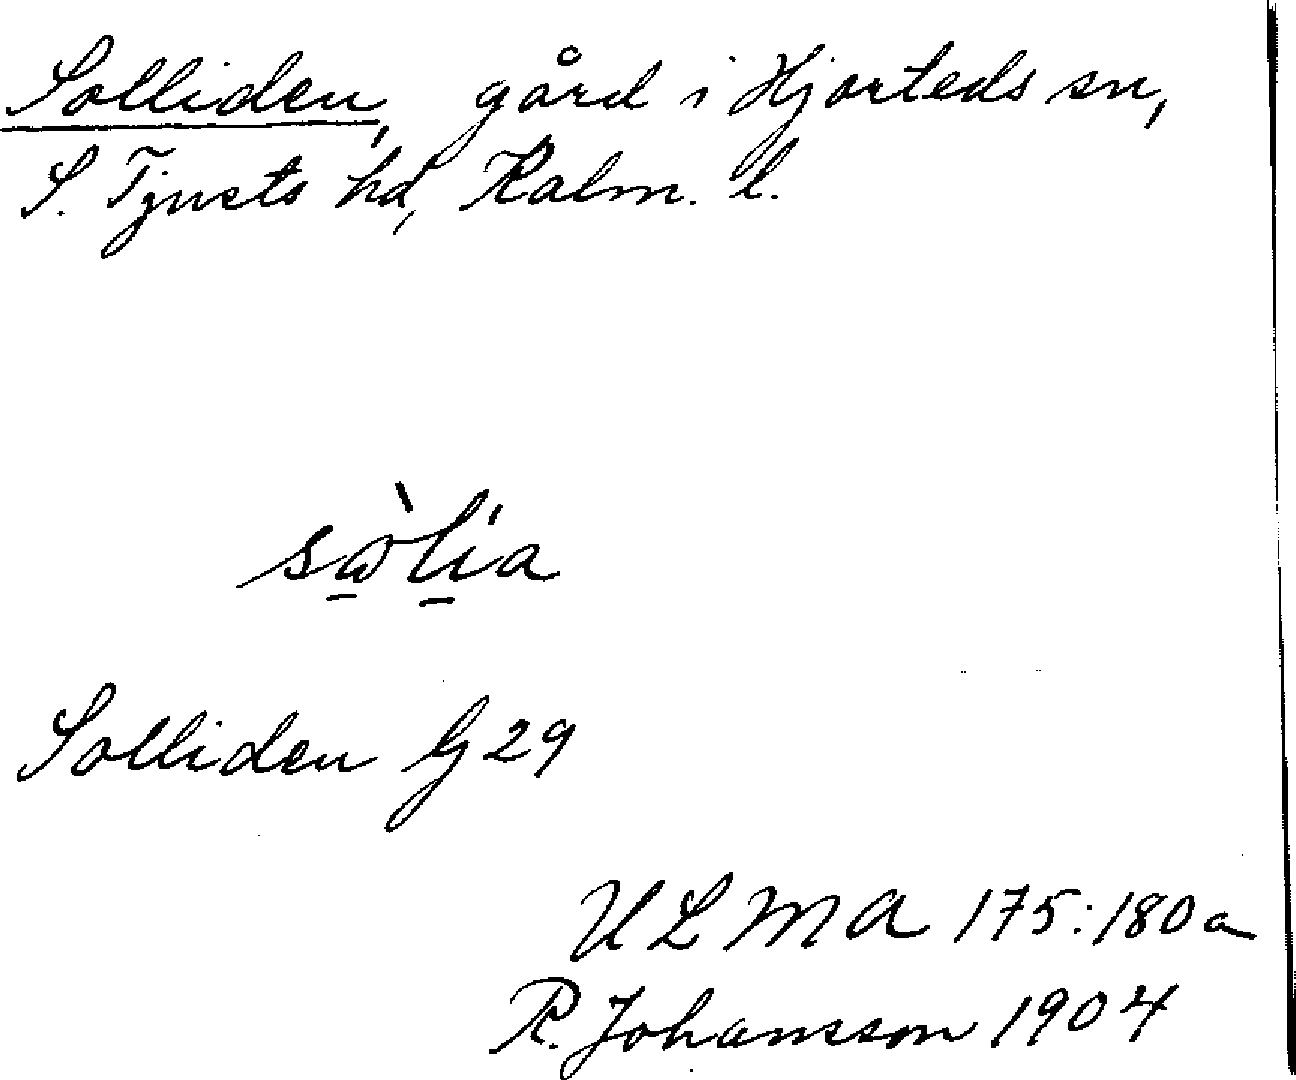 Solliden, gård i Hjorteds sn,
S. Tjusts hd, Kalm. l.
sὼ̲li̲a
Solliden G 29
ULMA 175:180a
R. Johansson 1904